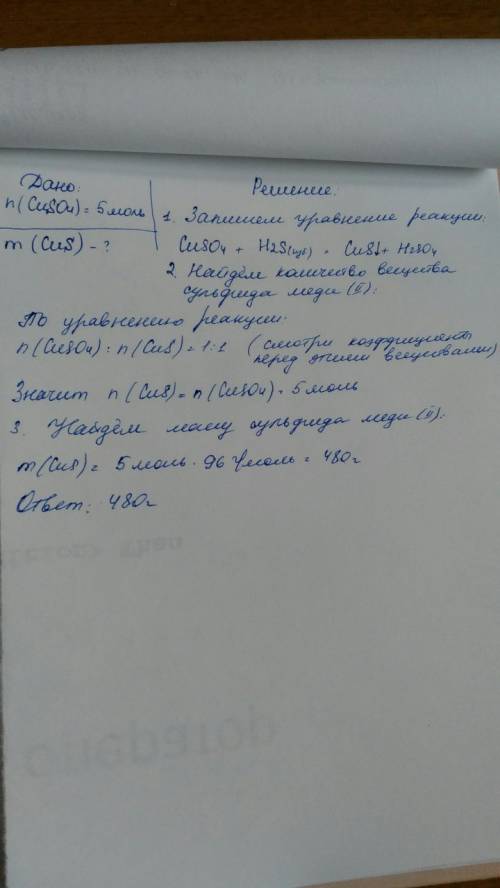 Дано:
n(CuSO4) = 5 моль
m(CuS) - ?
Решение:
1. Запишем уравнение реакции:
CuSO4 + H2S = CuS↓ + H2SO4
2. Найдём количество вещества
сульфида меди (II):
По уравнению реакции:
n(CuSO4) : n(CuS) = 1:1 (смотри коэффициент
перед этими веществами)
Значит n(CuS) = n(CuSO4) = 5 моль
3. Найдём массу сульфида меди (II):
m(CuS) = 5 моль · 96 г/моль = 480г
Ответ: 480г
оператор